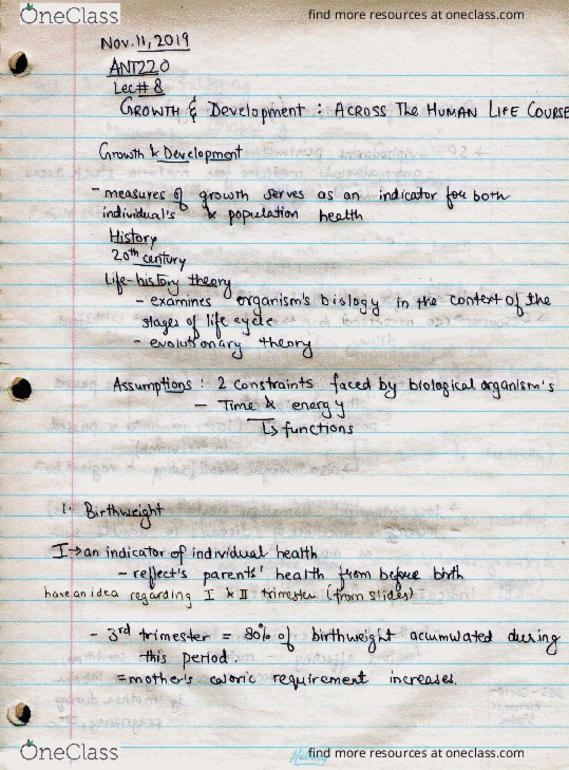 OneClass
find more resources at oneclass.com
Nov. 11, 2019
ANT220
Lec# 8
GROWTH & Development : ACROSS The HUMAN LIFE COURSE
Growth & Development
- measures of growth serves as an indicator for both
individual's & population health
History
20th century
Life-history theory
- examines organism's biology in the context of the
stages of life cycle
- evolutionary theory
Assumptions : 2 constraints faced by biological organism's
- Time & energy
↳ functions
1. Birthweight
I → an indicator of individual health
- reflect's parents' health from before birth
have an idea regarding I & II trimester (from slides)
- 3rd trimester = 80% of birthweight acumulated during
this period.
= mother's caloric requirement increases.
OneClass
find more resources at oneclass.com